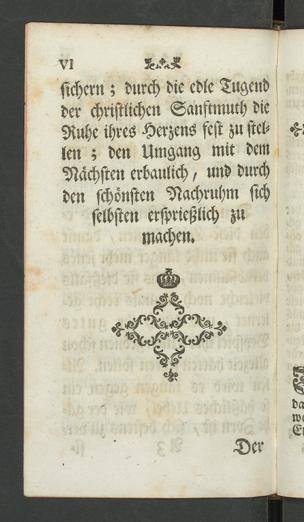 VI
sichern ; durch die edle Tugend
der christlichen Sanftmuth die
Ruhe ihres Herzens fest zu stel-
len ; den Umgang mit dem
Nächsten erbaulich, und durch
den schönsten Nachruhm sich
selbsten ersprießlich zu
machen.
Der
da
we